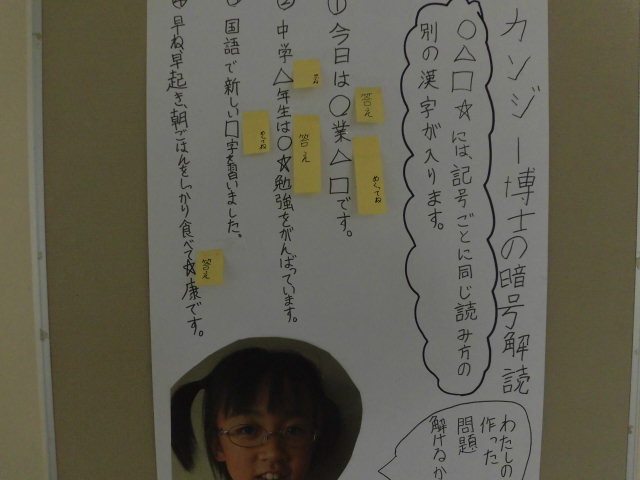 カンジー博士の暗号解読
○△□☆には、記号ごとに同じ読み方の
別の漢字が入ります。
①今日は○業△□です。
答え
めくってね
②中学△年生は○☆勉強をがんばっています。
答え
国語で新しい□字を習いました。
めくってね
④早ね、早起き、朝ごはんをしっかり食べて☆康です。
答え
わたしの
作った
問題
解けるか